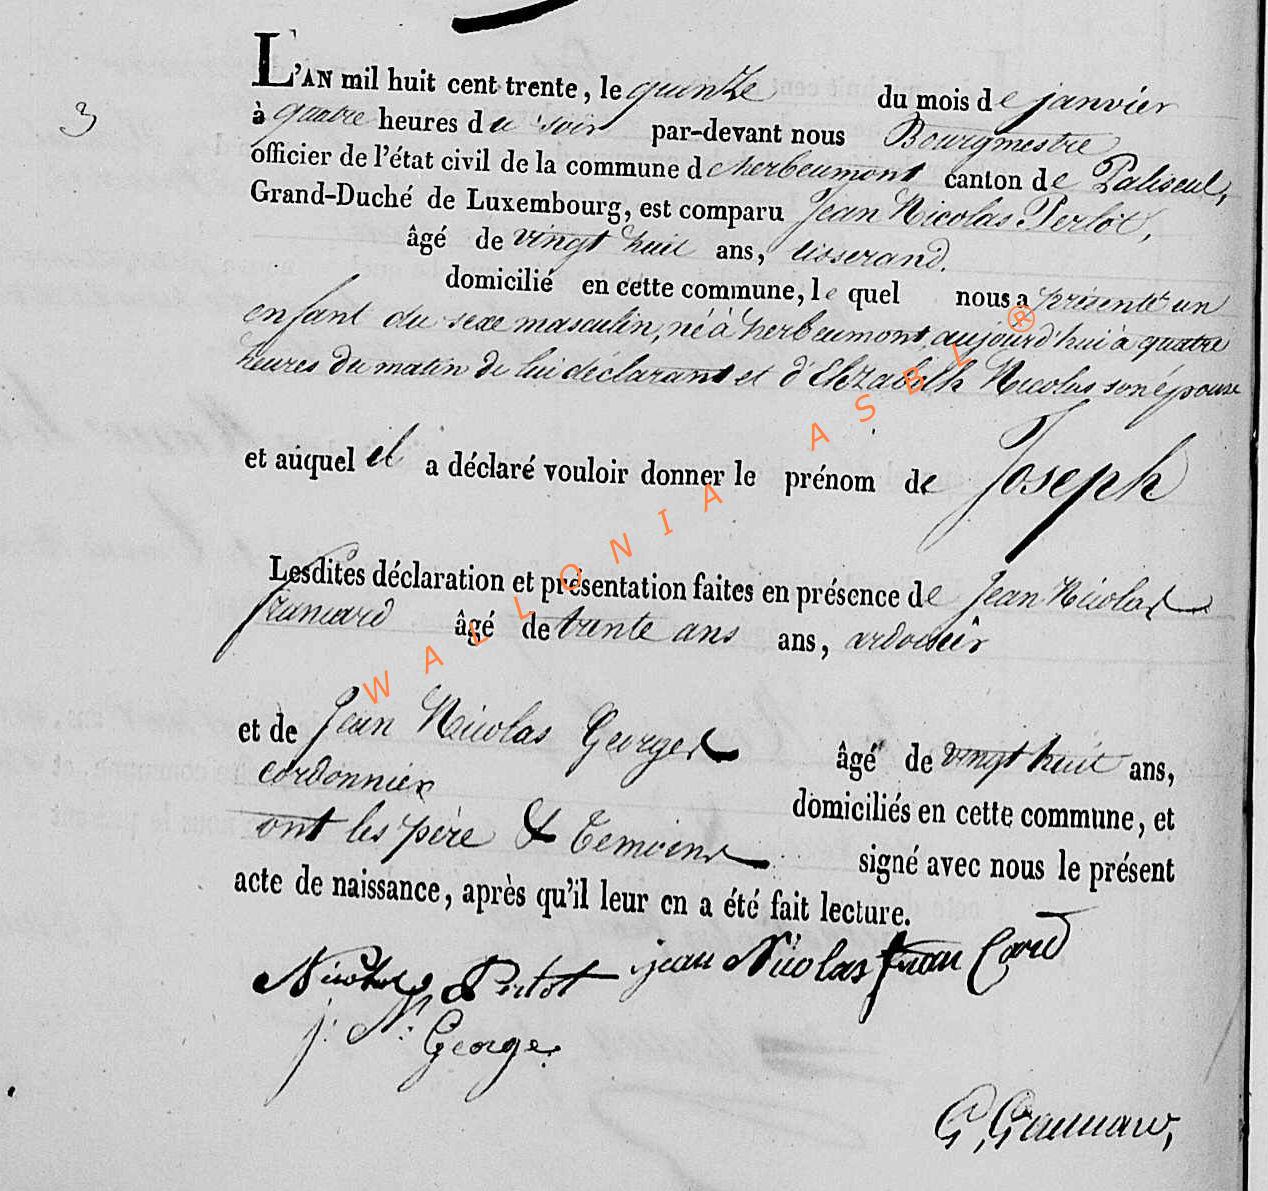 3
L'AN mil huit cent trente, le quinze du mois de janvier
à quatre heures du soir par-devant nous Bourgmestre
officier de l'état civil de la commune d'herbeumont canton de Paliseul,
Grand-Duché de Luxembourg, est comparu Jean Nicolas Perlot,
âgé de vingt huit ans, tisserand.
domicilié en cette commune, le quel nous a présenté un
enfant du sexe masculin, né à herbeumont, aujourd'hui à quatre
heures du matin de lui déclarant et d'Elizabeth Nicolas son épouse
et auquel il a déclaré vouloir donner le prénom de Joseph
Lesdites déclaration et présentation faites en présence de Jean Nicolas
âgé de trente ans ans, ardoisier
et de Jean Nicolas Georges âgé de vingt huit ans,
cordonnier
domiciliés en cette commune, et
ont les père & temoins signé avec nous le présent
acte de naissance, après qu'il leur en a été fait lecture.
Nicolas Perlot jean Nicolas
j: N: George
WALLONIA ASBL ®